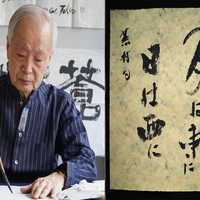 蒼
月は東に
日は西に
蕪村句